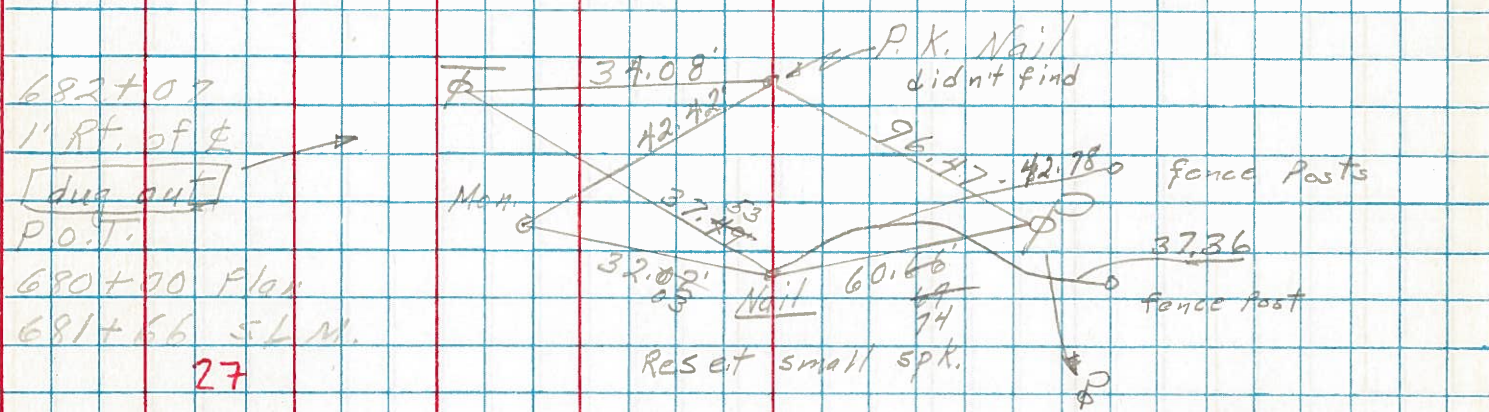 682+07
1' Rt. of ℄
dug out
P.O.T.
680+00 Flat
681+66 S.L.M.
27
34.08'
P.K. Nail
didn't find
42.42'
96.47
42.78
fence Posts
Mon.
37.49
53
32.02'
03
Nail
60.66'
69
74
37.36
fence Post
Reset small spk.